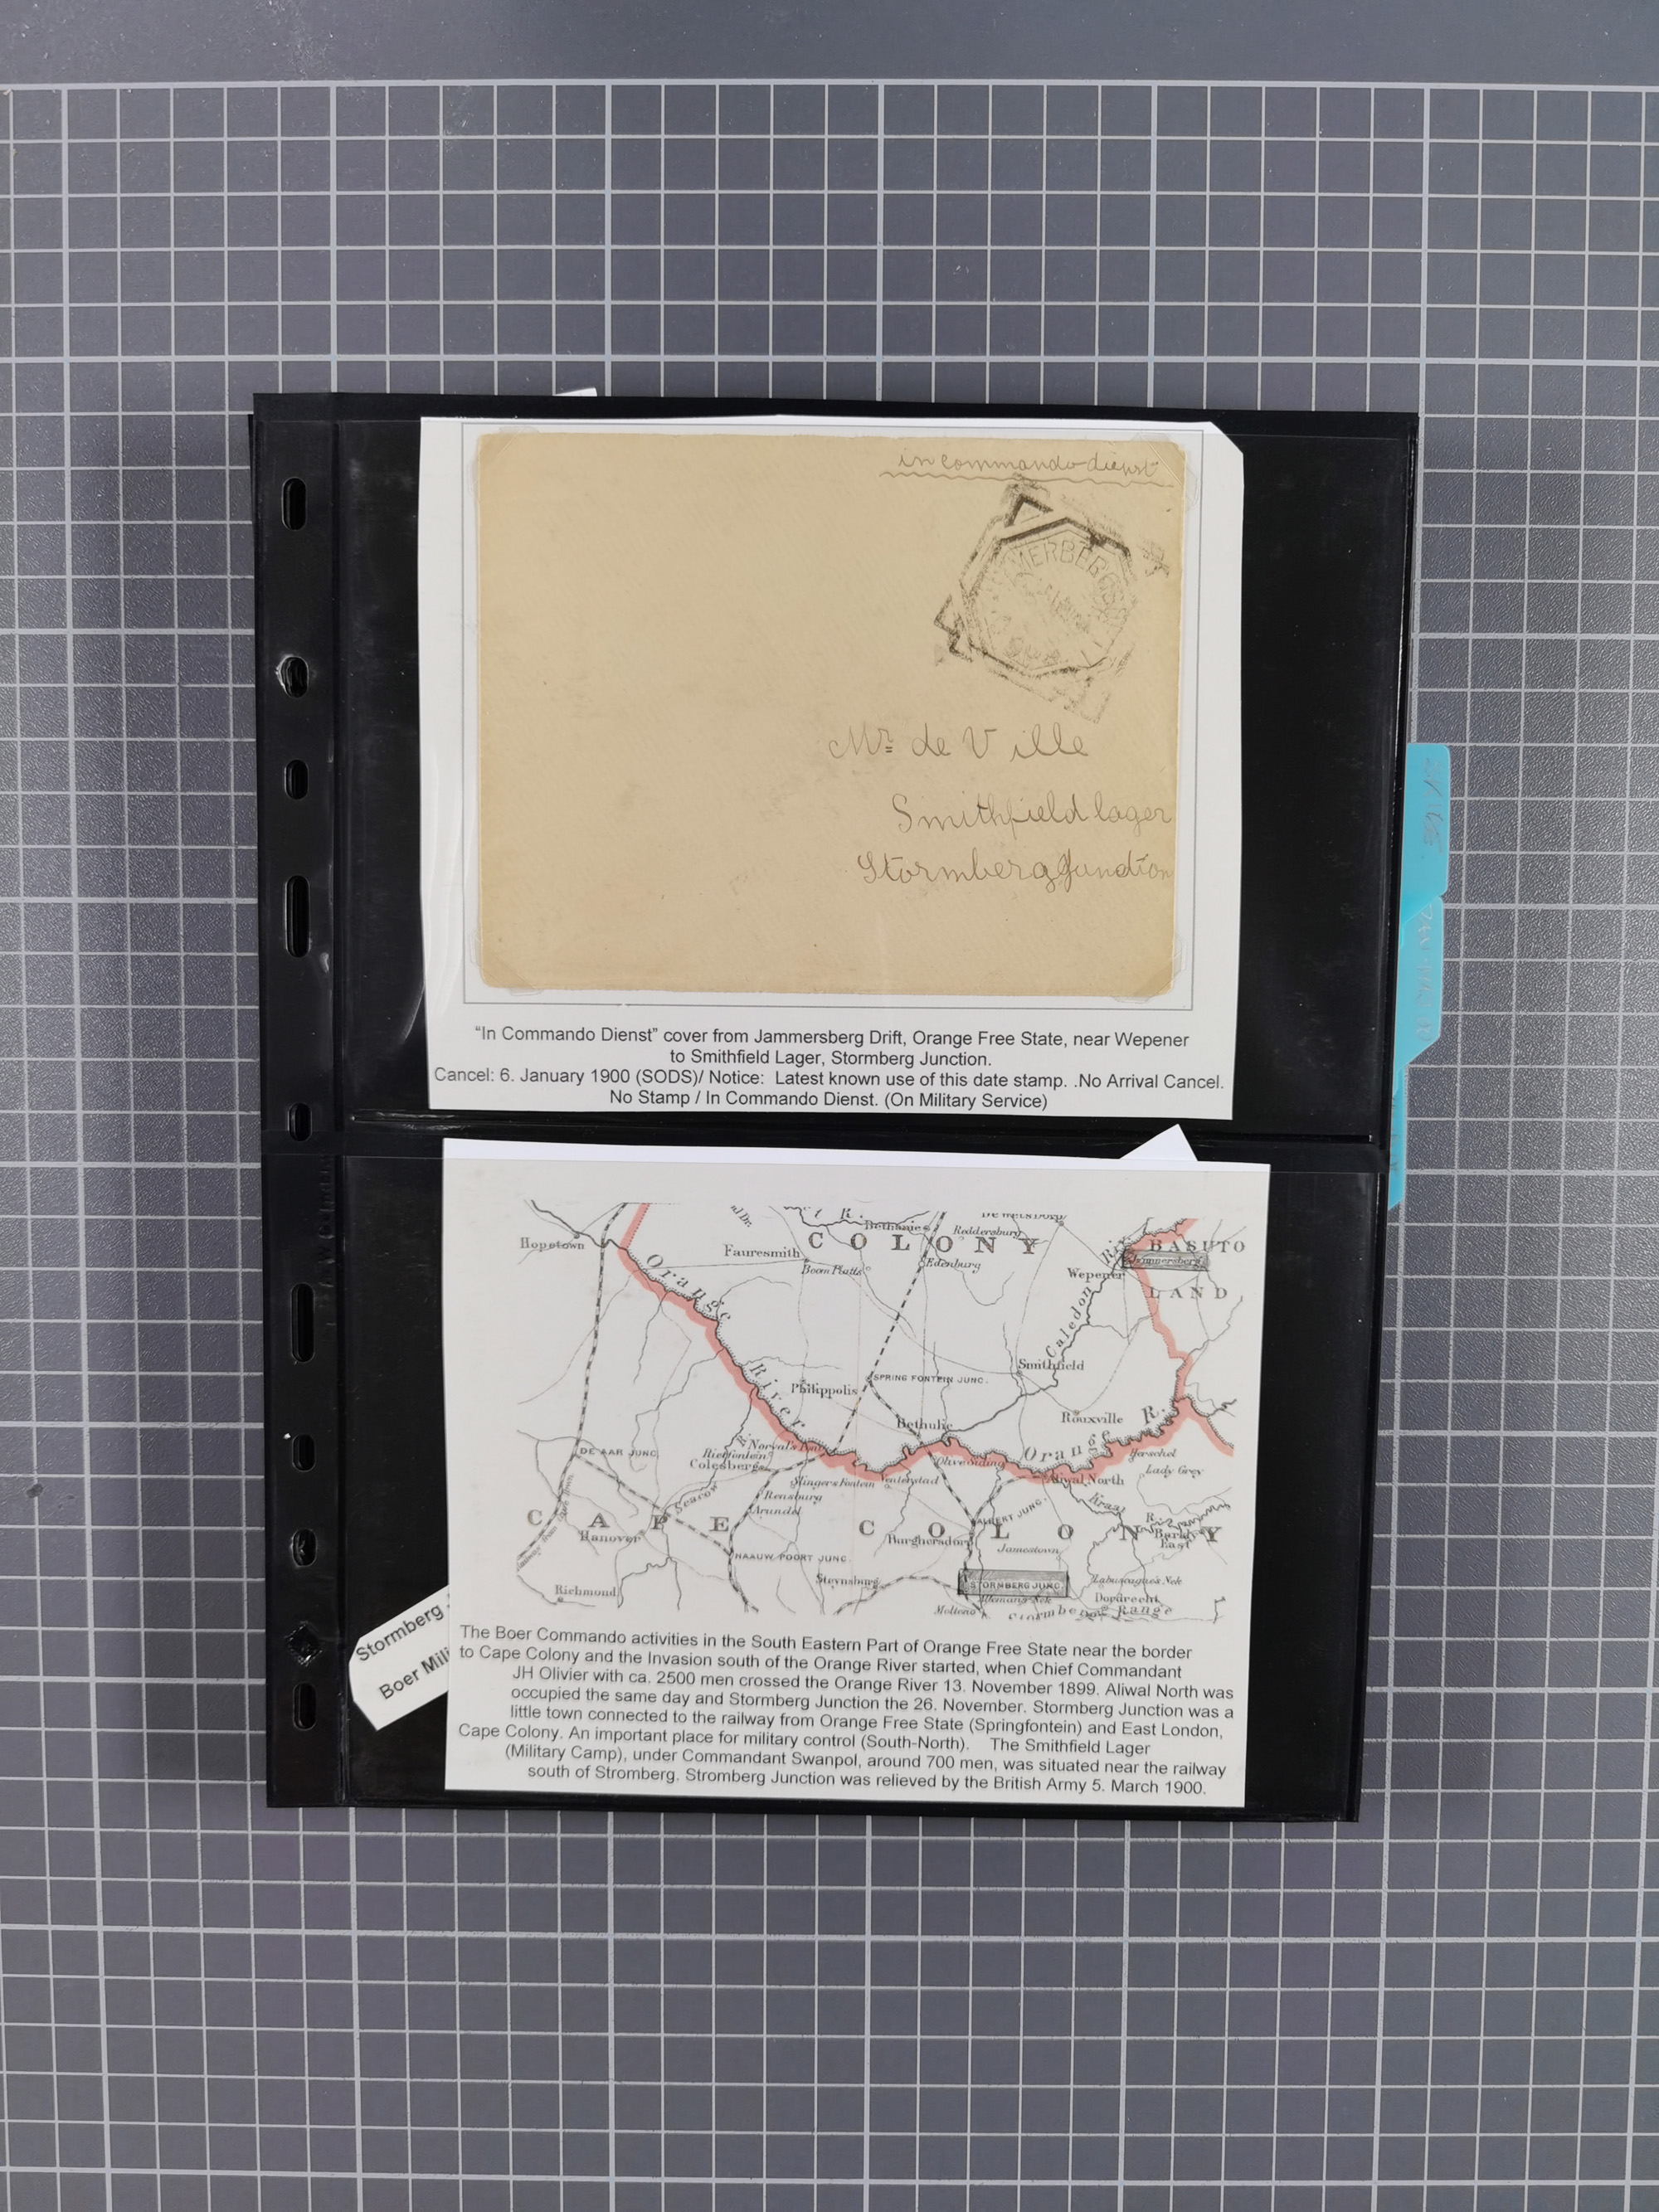 in commando dienst
MERBERGS
Mr de Ville
Smithfield lager
Stormberg Junction
“In Commando Dienst” cover from Jammersberg Drift, Orange Free State, near Wepener
to Smithfield Lager, Stormberg Junction.
Cancel: 6. January 1900 (SODS)/ Notice: Latest known use of this date stamp. .No Arrival Cancel.
No Stamp / In Commando Dienst. (On Military Service)
Hopetown
Orange
River
Fauresmith
Boom Platts
COLONY
R.
Bethanie
Reddersburg
Edenburg
Wepener
Caledon
Riv
BASUTO
LAND
Jammersberg
Smithfield
SPRING FONTEIN JUNC.
Philippolis
Bethulie
Rouxville
Orange R.
DE AAR JUNC.
Colesberg
Rensburg
Arundel
Slingers Fontein
Olive Siding
Aliwal North
Herschel
Lady Grey
CAPE COLONY
Seacow
Hanover
HAAUW POORT JUNC.
Burghersdorp
ALBERT JUNC.
Jamestown
Kraai
R.
Barkly
East
Steynsburg
STORMBERG JUNC.
Labuscagne's Nek
Dordrecht
Molteno
Stormberg Range
Richmond
Stormberg
Boer Mili
The Boer Commando activities in the South Eastern Part of Orange Free State near the border
to Cape Colony and the Invasion south of the Orange River started, when Chief Commandant
JH Olivier with ca. 2500 men crossed the Orange River 13. November 1899. Aliwal North was
occupied the same day and Stormberg Junction the 26. November. Stormberg Junction was a
little town connected to the railway from Orange Free State (Springfontein) and East London,
Cape Colony. An important place for military control (South-North). The Smithfield Lager
(Military Camp), under Commandant Swanpol, around 700 men, was situated near the railway
south of Stromberg. Stromberg Junction was relieved by the British Army 5. March 1900.